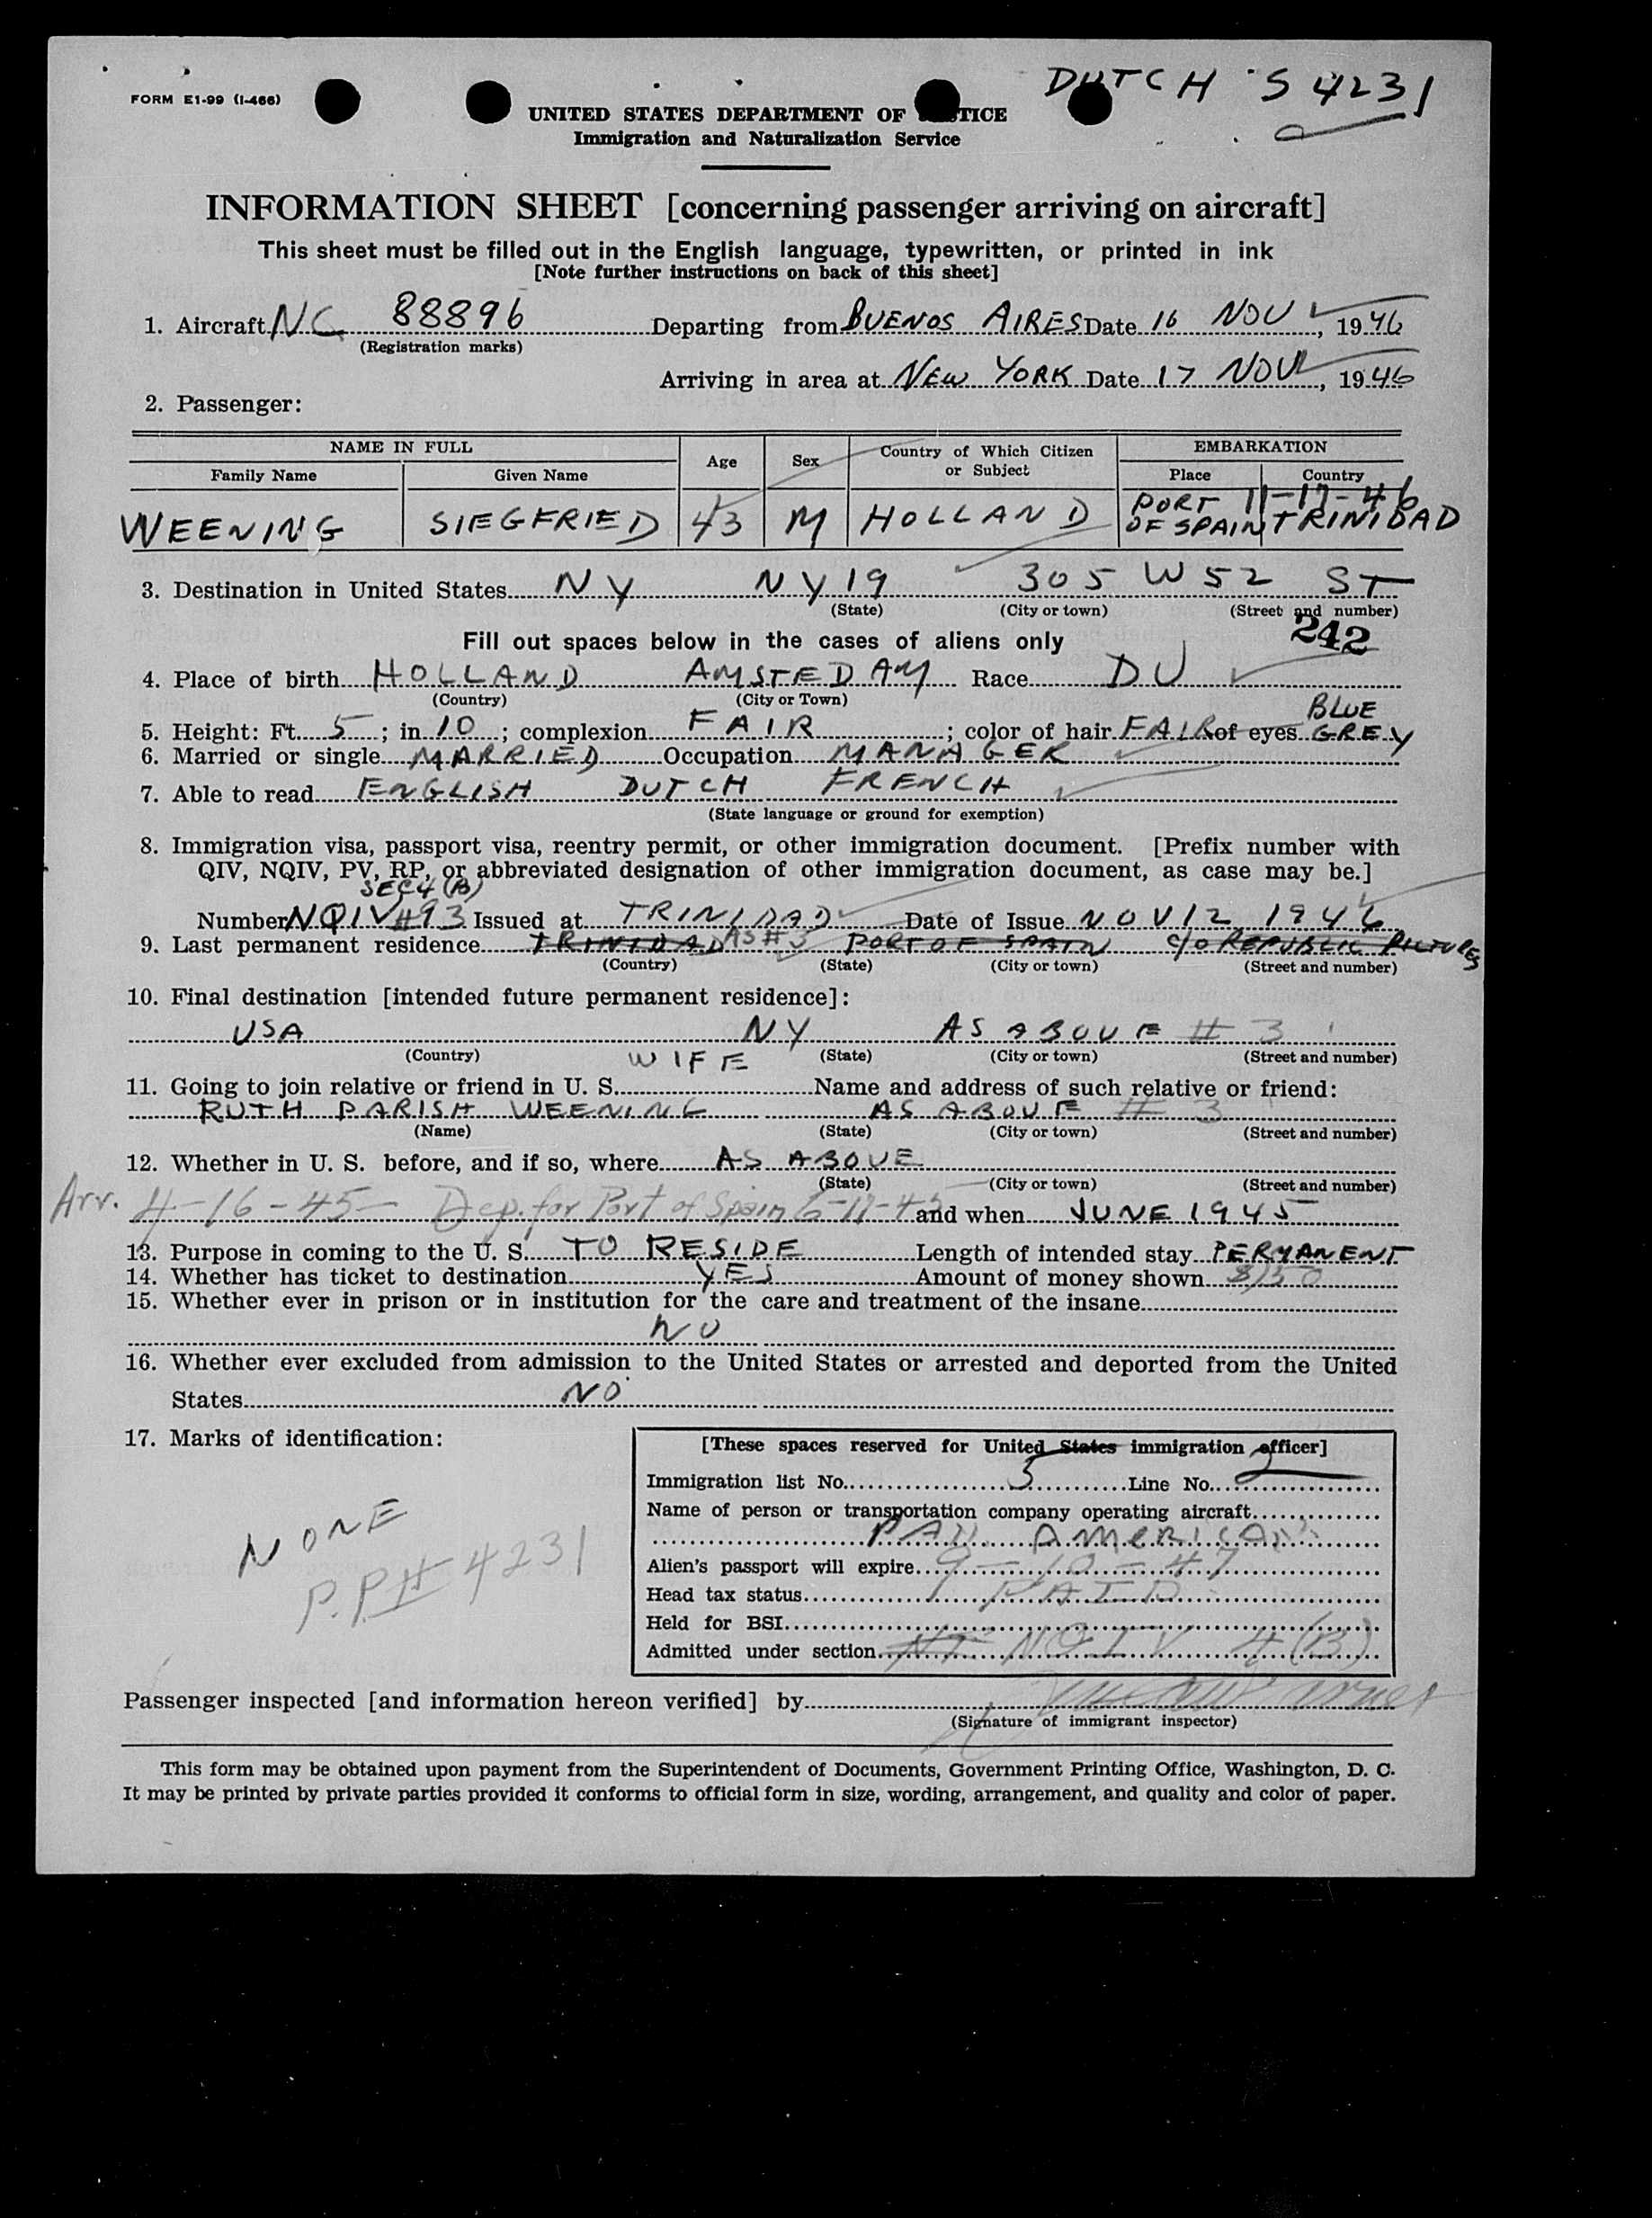 FORM E1-99 (I-466)
DUTCH S 4231
UNITED STATES DEPARTMENT OF JUSTICE
Immigration and Naturalization Service
INFORMATION SHEET [concerning passenger arriving on aircraft]
This sheet must be filled out in the English language, typewritten, or printed in ink
[Note further instructions on back of this sheet]
1. Aircraft NC 88896 Departing from BUENOS AIRES Date 16 NOV, 1946
(Registration marks)
Arriving in area at NEW YORK Date 17 NOV, 1946
2. Passenger:
NAME IN FULL Age Sex Country of Which Citizen or Subject EMBARKATION
Family Name Given Name Place Country
11-17-46
WEENING SIEGFRIED 43 M HOLLAND PORT OF SPAIN TRINIDAD
3. Destination in United States NY NY 19 305 W 52 ST
(State) (City or town) (Street and number)
Fill out spaces below in the cases of aliens only 242
4. Place of birth HOLLAND AMSTEDAM Race DU
(Country) (City or Town)
BLUE
5. Height: Ft. 5; in 10; complexion FAIR; color of hair FAIR of eyes GREY
6. Married or single MARRIED Occupation MANAGER
7. Able to read ENGLISH DUTCH FRENCH
(State language or ground for exemption)
8. Immigration visa, passport visa, reentry permit, or other immigration document. [Prefix number with
QIV, NQIV, PV, RP, or abbreviated designation of other immigration document, as case may be.]
SEC 4 (B)
Number NQIV #93 Issued at TRINIDAD Date of Issue NOV 12 1946
9. Last permanent residence TRINIDAD AS #3 PORT OF SPAIN c/o REPUBLIC PICTURES
(Country) (State) (City or town) (Street and number)
10. Final destination [intended future permanent residence]:
USA NY AS ABOVE # 3
(Country) (State) (City or town) (Street and number)
WIFE
11. Going to join relative or friend in U. S. Name and address of such relative or friend:
RUTH PARISH WEENING AS ABOVE # 3
(Name) (State) (City or town) (Street and number)
12. Whether in U. S. before, and if so, where AS ABOVE
(State) (City or town) (Street and number)
Arr. 4-16-45 - Dep. for Port of Spain 6-17-45 and when JUNE 1945
13. Purpose in coming to the U. S. TO RESIDE Length of intended stay PERMANENT
14. Whether has ticket to destination YES Amount of money shown $150
15. Whether ever in prison or in institution for the care and treatment of the insane
NO
16. Whether ever excluded from admission to the United States or arrested and deported from the United
States NO
17. Marks of identification:
NONE
P.P.# 4231
[These spaces reserved for United States immigration officer]
Immigration list No. 5 Line No. 2
Name of person or transportation company operating aircraft
PAN AMERICAN
Alien's passport will expire 9-10-47
Head tax status PAID
Held for BSI
Admitted under section NQIV 4(B)
Passenger inspected [and information hereon verified] by
(Signature of immigrant inspector)
This form may be obtained upon payment from the Superintendent of Documents, Government Printing Office, Washington, D. C.
It may be printed by private parties provided it conforms to official form in size, wording, arrangement, and quality and color of paper.